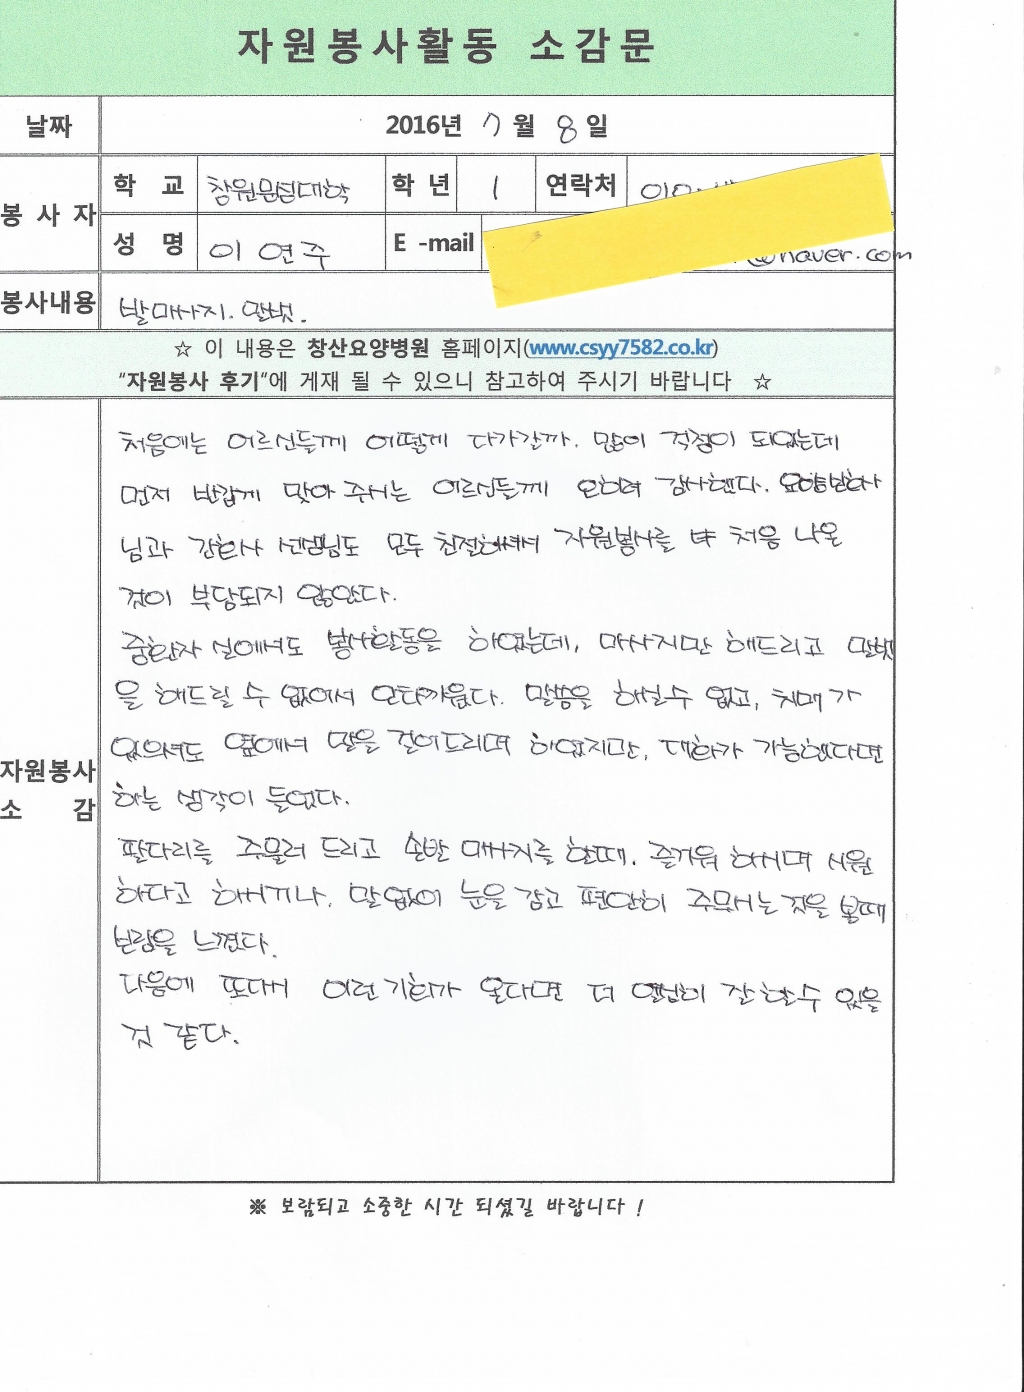 자원봉사활동 소감문
날짜 2016년 7월 8일
봉사자 학 교 창원문성대학 학 년 1 연락처 010
성 명 이연주 E -mail @naver.com
봉사내용 발마사지. 말벗.
☆ 이 내용은 창산요양병원 홈페이지(www.csyy7582.co.kr)
"자원봉사 후기"에 게재 될 수 있으니 참고하여 주시기 바랍니다 ☆
자원봉사 소 감
처음에는 어르신들께 어떻게 다가갈까. 많이 걱정이 되었는데
먼저 반갑게 맞아 주시는 어르신들께 오히려 감사했다. 요양보호사
님과 간호사 선생님도 모두 친절하셔서 자원봉사를 처음 나온
것이 부담되지 않았다.
중환자 실에서도 봉사활동을 하였는데, 마사지만 해드리고 말벗
을 해드릴 수 없어서 안타까웠다. 말씀을 하실수 없고, 치매가
있으셔도 옆에서 말을 걸어드리며 하였지만, 대화가 가능했다면
하는 생각이 들었다.
팔다리를 주물러 드리고 손발 마사지를 할때. 즐거워 하시며 시원
하다고 하시거나, 말없이 눈을 감고 편안히 주무시는 것을 볼때
보람을 느꼈다.
다음에 또다시 이런 기회가 온다면 더 열심히 잘 할수 있을
것 같다.
※ 보람되고 소중한 시간 되셨길 바랍니다 !